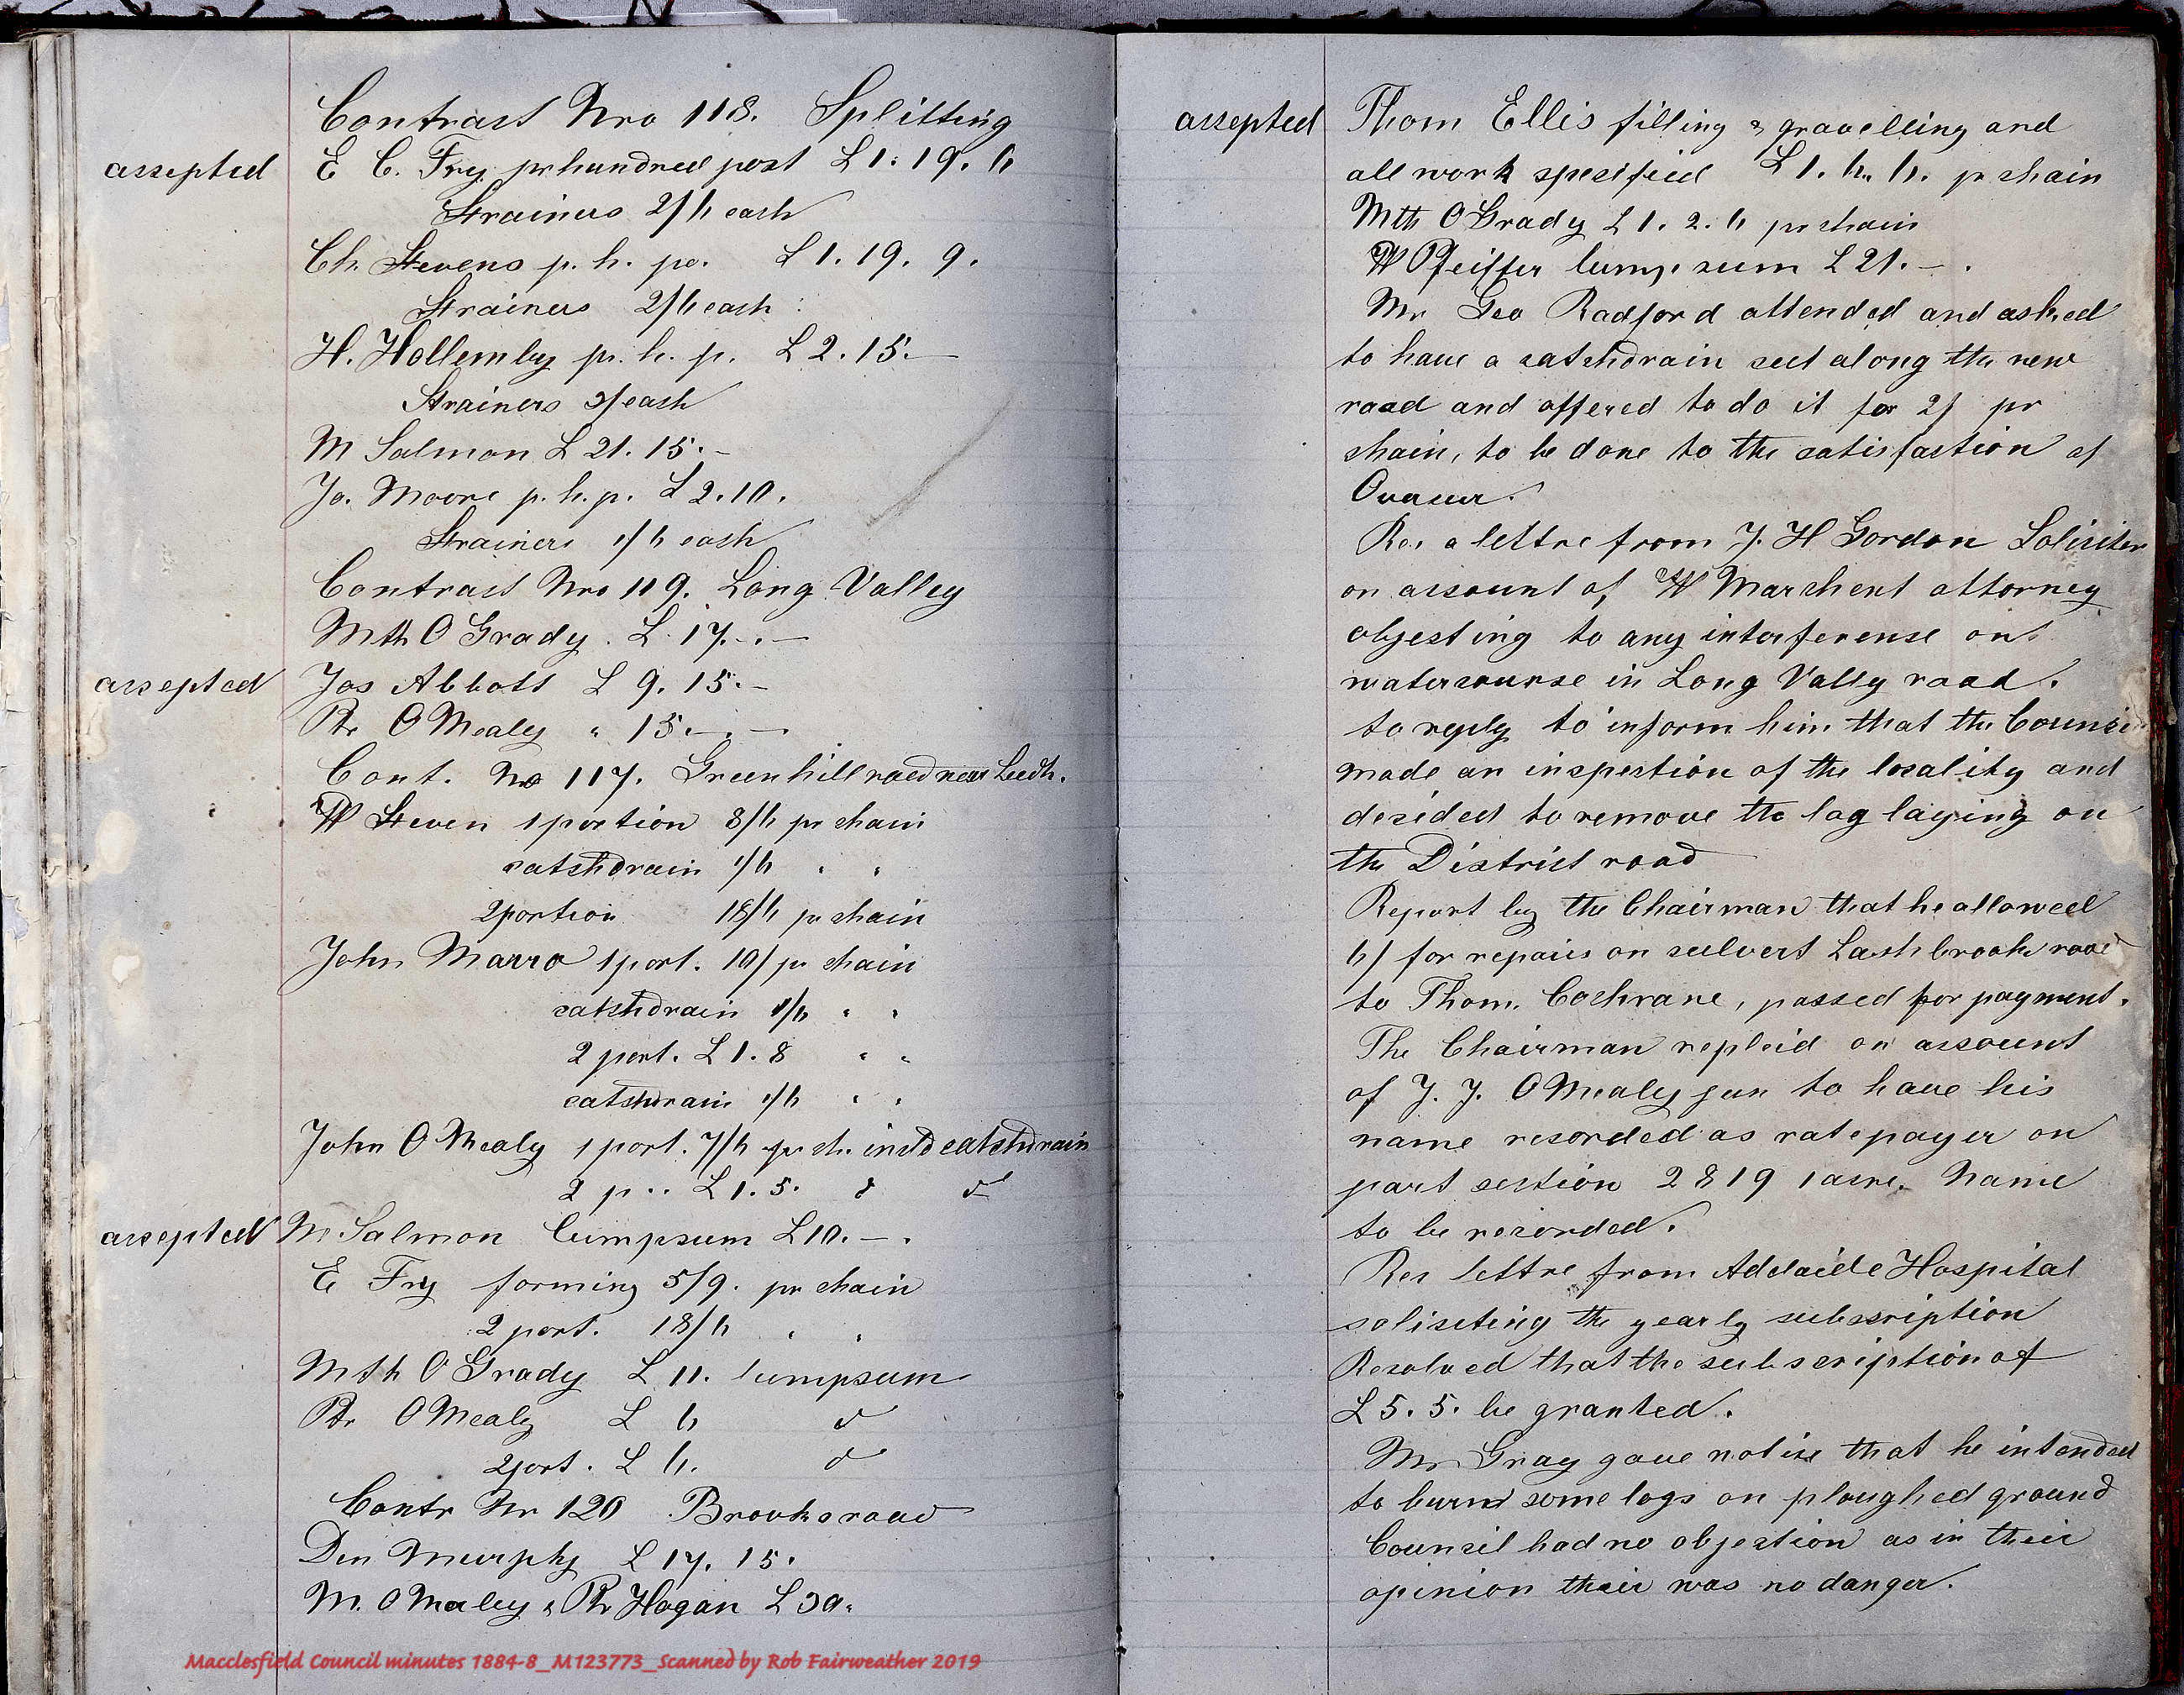 Contract Nro 118. Splitting
accepted E C. Fry pr hundred post £ 1. 19. 6
Strainers 2/6 each
Ch. Stevens p. h. po. £ 1. 19. 9.
Strainers 2/6 each
H. Hollemby pr. h. p. £ 2. 15. —
Strainers 2/ each
M Salmon £ 21. 15. –
Jo. Moore p. h. p. £ 2. 10.
Strainers 1/6 each
Contract Nro 119. Long Valley
Mth O Grady. £ 17. – . –
accepted Jas Abbott £ 9. 15. –
Ptr O Mealy " 15. – . –
Cont. No 117. Greenhill roed near
W Steven 1 portion 8/6 pr chain
catchdrain 1/6 " "
2 portion 18/6 pr chain
John Marro 1 port. 10/ pr chain
catchdrain 1/6 " "
2 port. £ 1. 8 " "
catchdrain 1/6 " "
John O Mealy 1 port. 7/6 pr ch. catchdrain
2 p . . £ 1. 5. d d
accepted M Salmon lumpsum £ 10. – .
E Fry forming 5/9. pr chain
2 port. 18/6 " "
Mth O Grady £ 11. lumpsum
Ptr O Mealy £ 6 d
2 port. £ 6. d
Contr Nr 120 Brooks road
Den Murphy £ 17. 15.
M. O Maley & Ptr Hogan £ 30.
Macclesfield Council minutes 1884-8_M123773_Scanned by Rob Fairweather 2019
accepted Thom Ellis filling & gravelling and
all work specifeid £ 1. 6. 6. pr chain
Mth O Grady £ 1. 2. 6 pr chain
W Pfeiffer lump sum £ 21. – .
Mr Geo Radford attended and asked
to have a catchdrain cut along the new
road and offered to do it for 2/ pr
chain, to be done to the satisfaction of
Rec. a lettre from J. H Gordon Soliciter
on account of W Marchent attorney
objecting to any interference on
watercourse in Long Vally road.
to reply to inform him that the Council
made an inspection of the locality and
decided to remove the log laying on
the District road
Report by the Chairman that he allowed
6/ for repairs on culvert Lashbrooke road
to Thom. Cochrane, passed for payment.
The Chairman repleid on account
of J. J. O Mealy jun to have his
name recorded as ratepayer on
part section 2819 1 acre. Name
to be recorded.
Rec lettre from Adelaide Hospital
soliciting the yearly subscription
Resolved that the subscription of
£ 5. 5. be granted.
Mr Gray gave notice that he intended
to burn some logs on ploughed ground
Council had no objection as in their
opinion their was no danger.